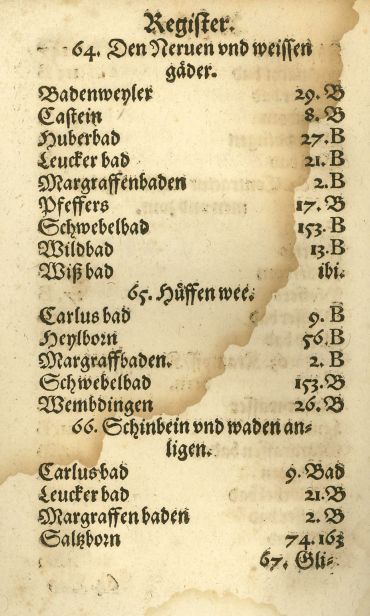 Register.
64. Den Neruen vnd weissen
gäder.
Badenweyler 29. B
Castein 8. B
Huberbad 27. B
Leucker bad 21. B
Margraffenbaden 2. B
Pfeffers 17. B
Schwebelbad 153. B
Wildbad 13. B
Wiß bad ibi.
65. Hüffen wee.
Carlus bad 9. B
Heylborn 56. B
Margraffbaden. 2. B
Schwebelbad 153. B
Wembdingen 26. B
66. Schinbein vnd waden an-
ligen.
Carlusbad 9. Bad
Leucker bad 21. B
Margraffen baden 2. B
Saltzborn 74. 163
67. Gli-